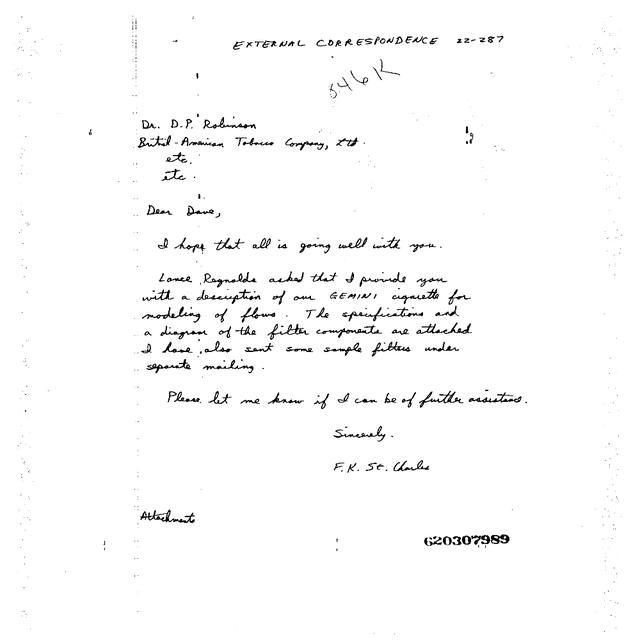 EXTERNAL CORRESPONDENCE 22-287
846K
Dr. D.P. Robinson
British-American Tobacco Company, Ltd.
etc.
etc.
Dear Dave,
I hope that all is going well with you.
Lance Reynolds asked that I provide you
with a description of our GEMINI cigarette for
modeling of flows. The specifications and
a diagram of the filter components are attached
I have also sent some sample filters under
separate mailing.
Please let me know if I can be of further assistance.
Sincerely.
F.K. St. Charles
Attachments
620307989